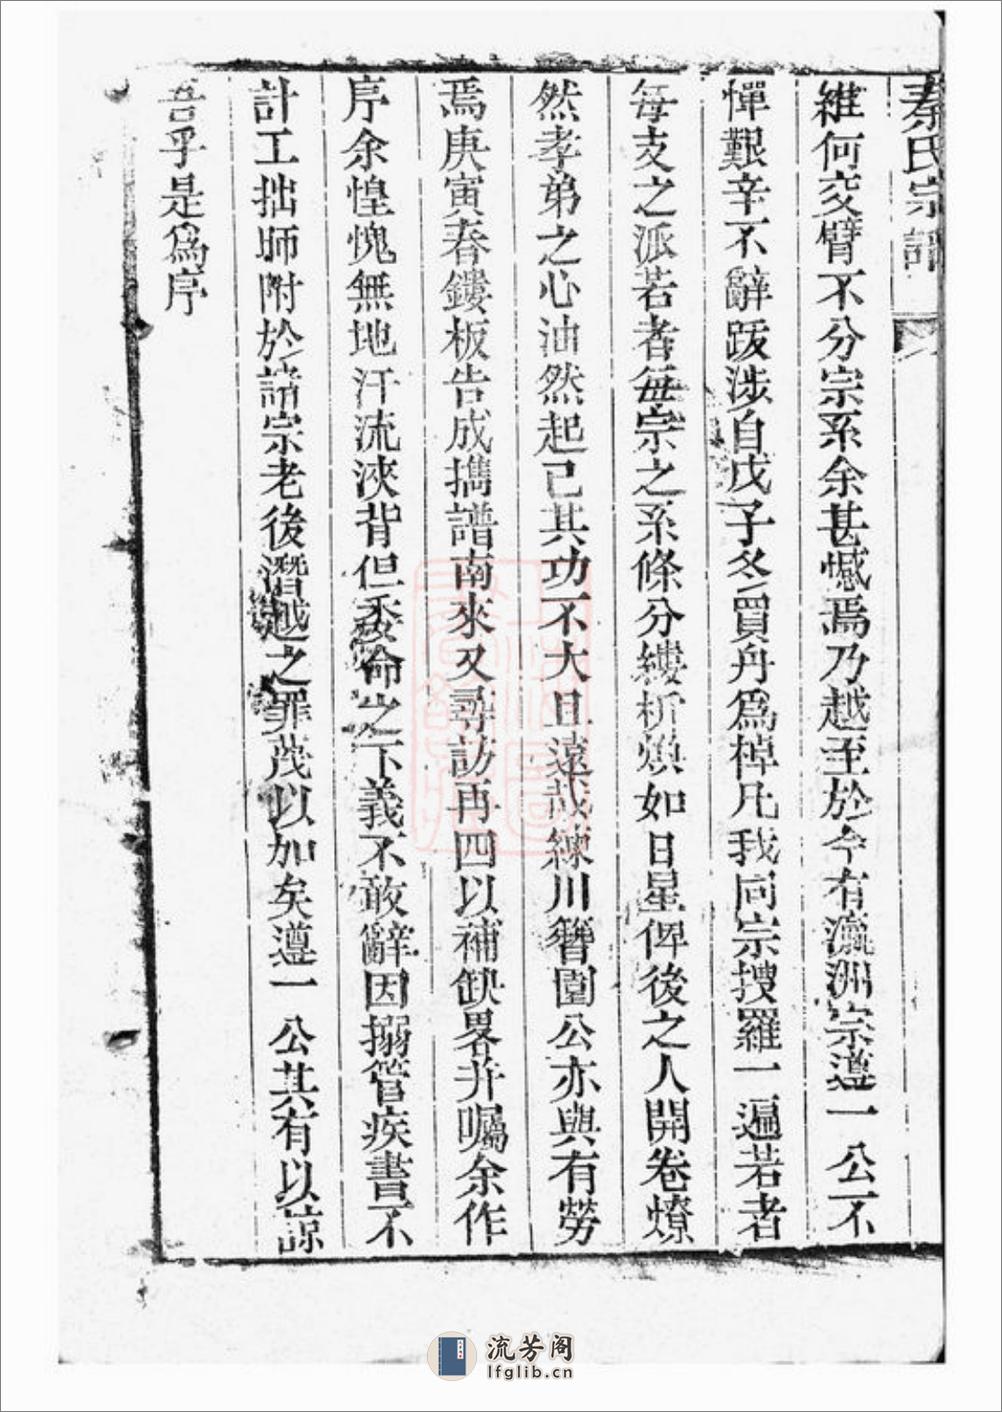 秦氏宗譜
維何交臂不分宗系余甚憾焉乃越至於今有瀛洲宗遵一公不
憚艱辛不辭跋涉自戊子冬買舟爲棹凡我同宗搜羅一遍若者
每支之派若者每宗之系條分縷析煥如日星俾後之人開卷燎
然孝弟之心油然起已其功不大且遠哉練川簪園公亦與有勞
焉庚寅春鏤板告成攜譜南來又尋訪再四以補缺畧幷囑余作
序余惶愧無地汗流浹背但委命之下義不敢辭因搦管疾書不
計工拙帀附於諸宗老後潛越之罪茂以加矣遵一公其有以諒
吾乎是爲序
流芳阁
lfglib.cn